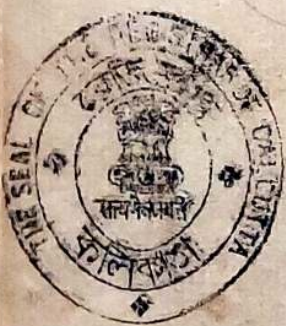 THE SEAL OF THE REGISTRAR OF CALCUTTA
सत्यमेव जयते
কলিকাতা